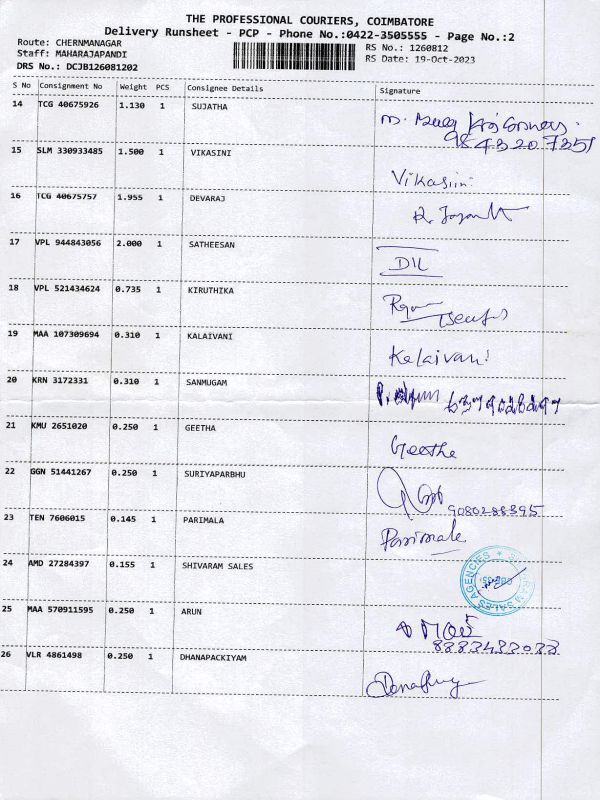 THE PROFESSIONAL COURIERS, COIMBATORE
Delivery Runsheet - PCP - Phone No.:0422-3505555 - Page No.:2
Route: CHERNMANAGAR
Staff: MAHARAJAPANDI
DRS No.: DCJB126081202
RS No.: 1260812
RS Date: 19-Oct-2023
S No Consignment No Weight PCS Consignee Details Signature
14 TCG 40675926 1.130 1 SUJATHA
9843207351
15 SLM 330933485 1.500 1 VIKASINI Vikasini
16 TCG 40675757 1.955 1 DEVARAJ
17 VPL 944843056 2.000 1 SATHEESAN
18 VPL 521434624 0.735 1 KIRUTHIKA
19 MAA 107309694 0.310 1 KALAIVANI Kalaivani
20 KRN 3172331 0.310 1 SANMUGAM
21 KMU 2651020 0.250 1 GEETHA Geetha
22 GGN 51441267 0.250 1 SURIYAPARBHU
9080288395
23 TEN 7606015 0.145 1 PARIMALA Parimala
24 AMD 27284397 0.155 1 SHIVARAM SALES
SALES AGENCIES
25 MAA 570911595 0.250 1 ARUN
8883433033
26 VLR 4861498 0.250 1 DHANAPACKIYAM